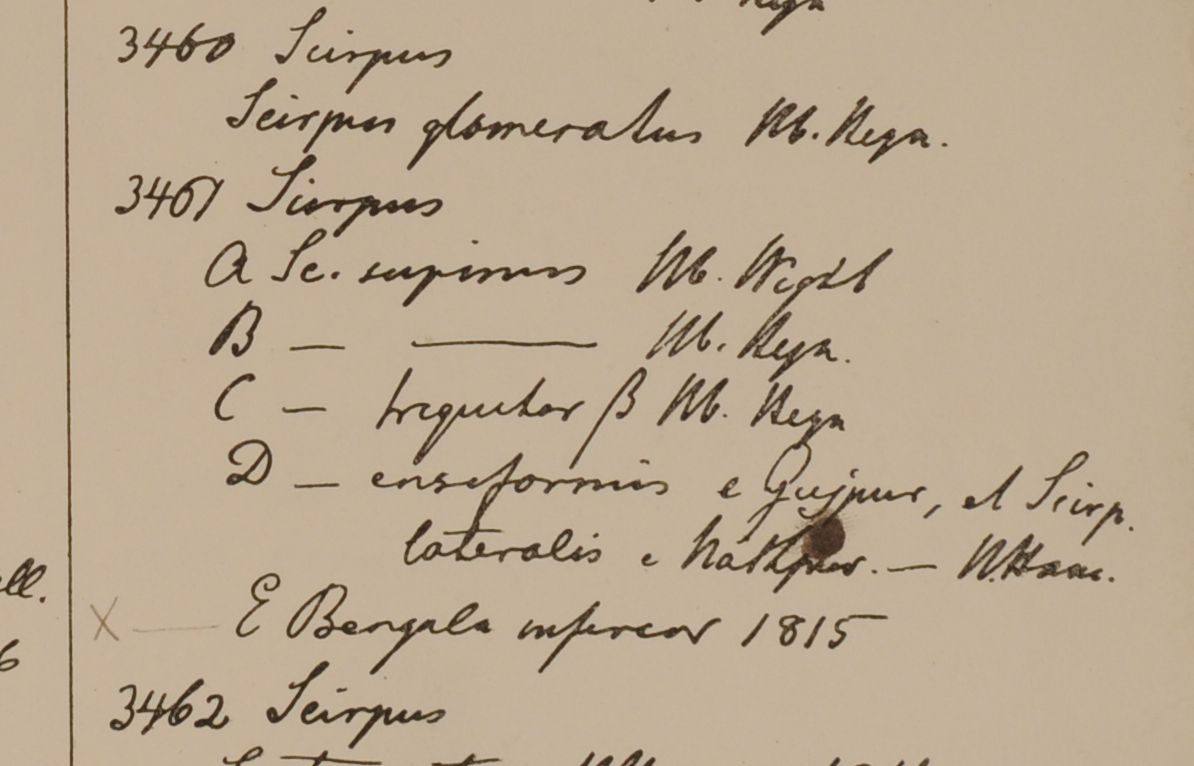 3460 Scirpus
Scirpus glomeratus Hb. Heyn.
3461 Scirpus
A Sc. supinus Hb. Wight
B — ——— Hb. Heyn.
C — triqueter β Hb. Heyn
D — enseformis e Gujpur, et Scirp.
lateralis e Nathpur. — H. Ham.
ell.
X — E Bengala inferior 1815
6
3462 Scirpus